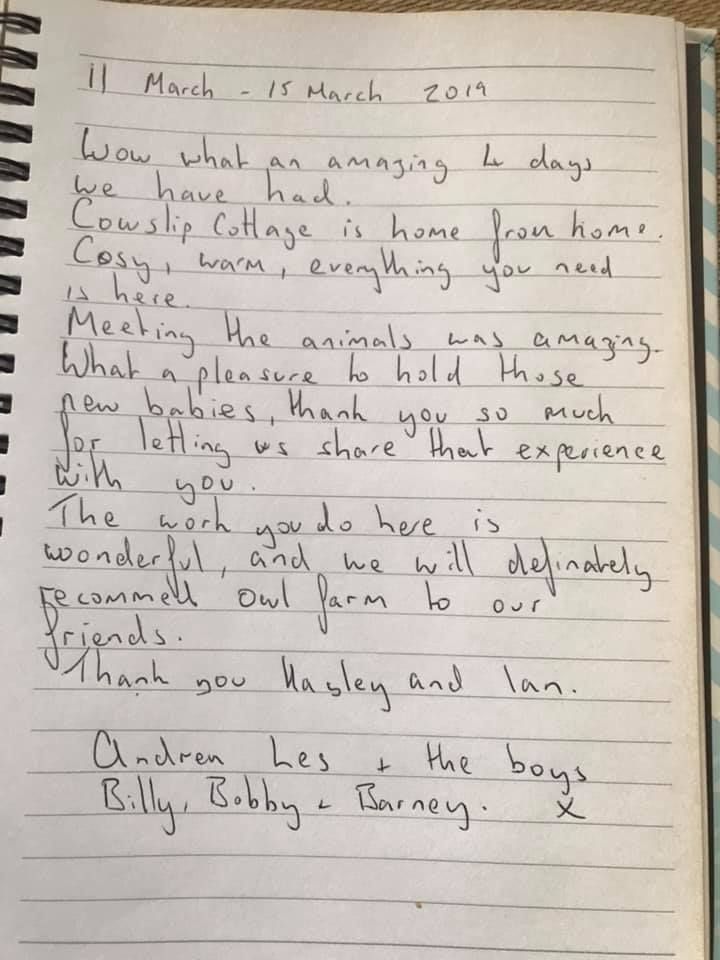 11 March - 15 March 2019
Wow what an amazing 4 days
we have had.
Cowslip Cottage is home from home.
Cosy, warm, everything you need
is here.
Meeting the animals was amazing.
What a pleasure to hold those
new babies, thank you so much
for letting us share that experience
with you.
The work you do here is
wonderful, and we will definately
recommell owl farm to our
friends.
Thank you Hasley and Ian.
Andrea Les + the boys
Billy, Bobby + Barney. X